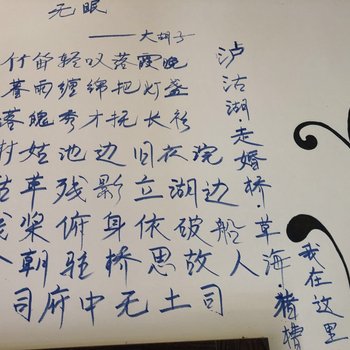 无眠
——大胡子
竹节轻叹落霞晚
暮雨缠绵把灯盏
落魄秀才抚长衫
村姑池边旧衣浣
草残影立湖边
桨俯身依破船
朝驻桥思故人
司府中无土司
泸沽湖走婚桥·草海·猪槽
我在这里